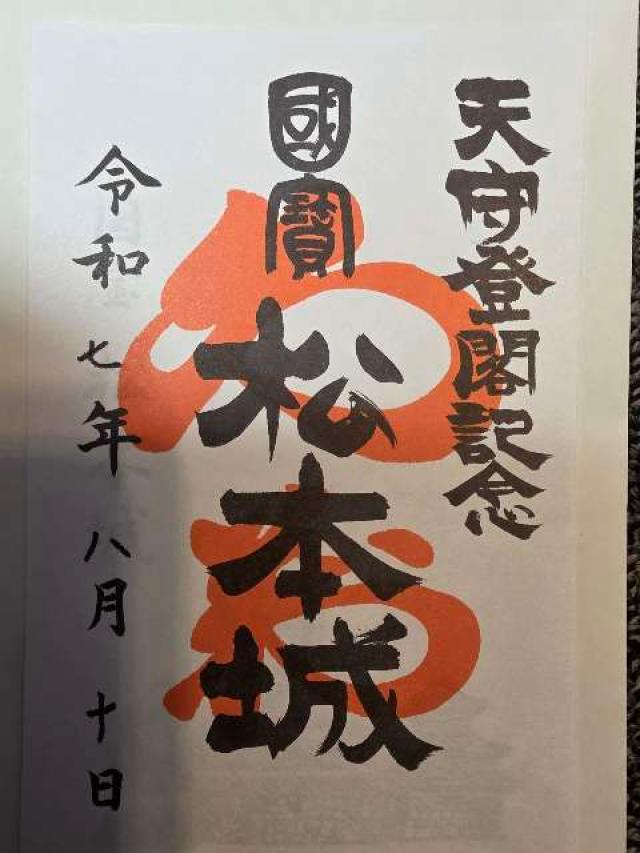 天守登閣記念
國寶 松本城
令和七年八月十日